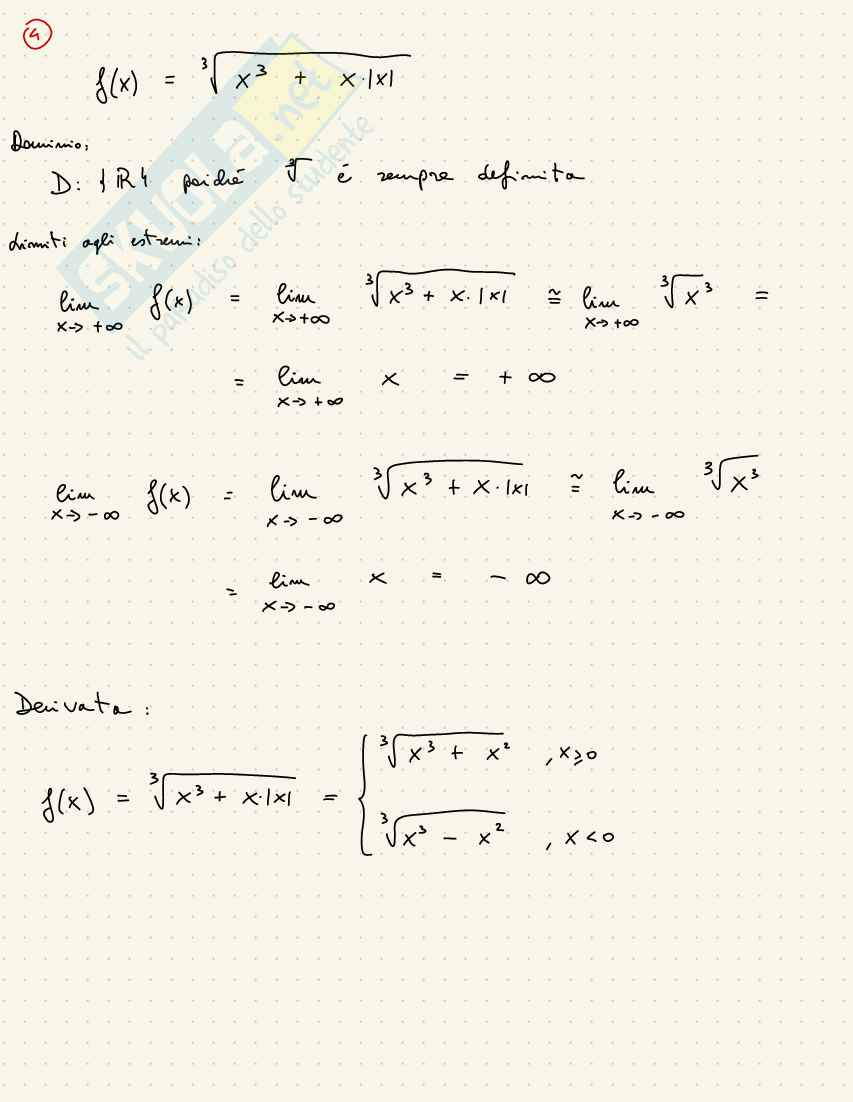 4
f(x) = ∛(x³ + x·|x|)
Dominio:
D: {ℝ} poiché ∛ é sempre definita
Limiti agli estremi:
lim x→+∞ f(x) = lim x→+∞ ∛(x³ + x·|x|) ≅ lim x→+∞ ∛x³ =
= lim x→+∞ x = +∞
lim x→-∞ f(x) = lim x→-∞ ∛(x³ + x·|x|) ≅ lim x→-∞ ∛x³
= lim x→-∞ x = -∞
Derivata:
f(x) = ∛(x³ + x·|x|) = { ∛(x³ + x²) , x⩾0
∛(x³ - x²) , x<0
SKUOLA.net
il paradiso dello studente